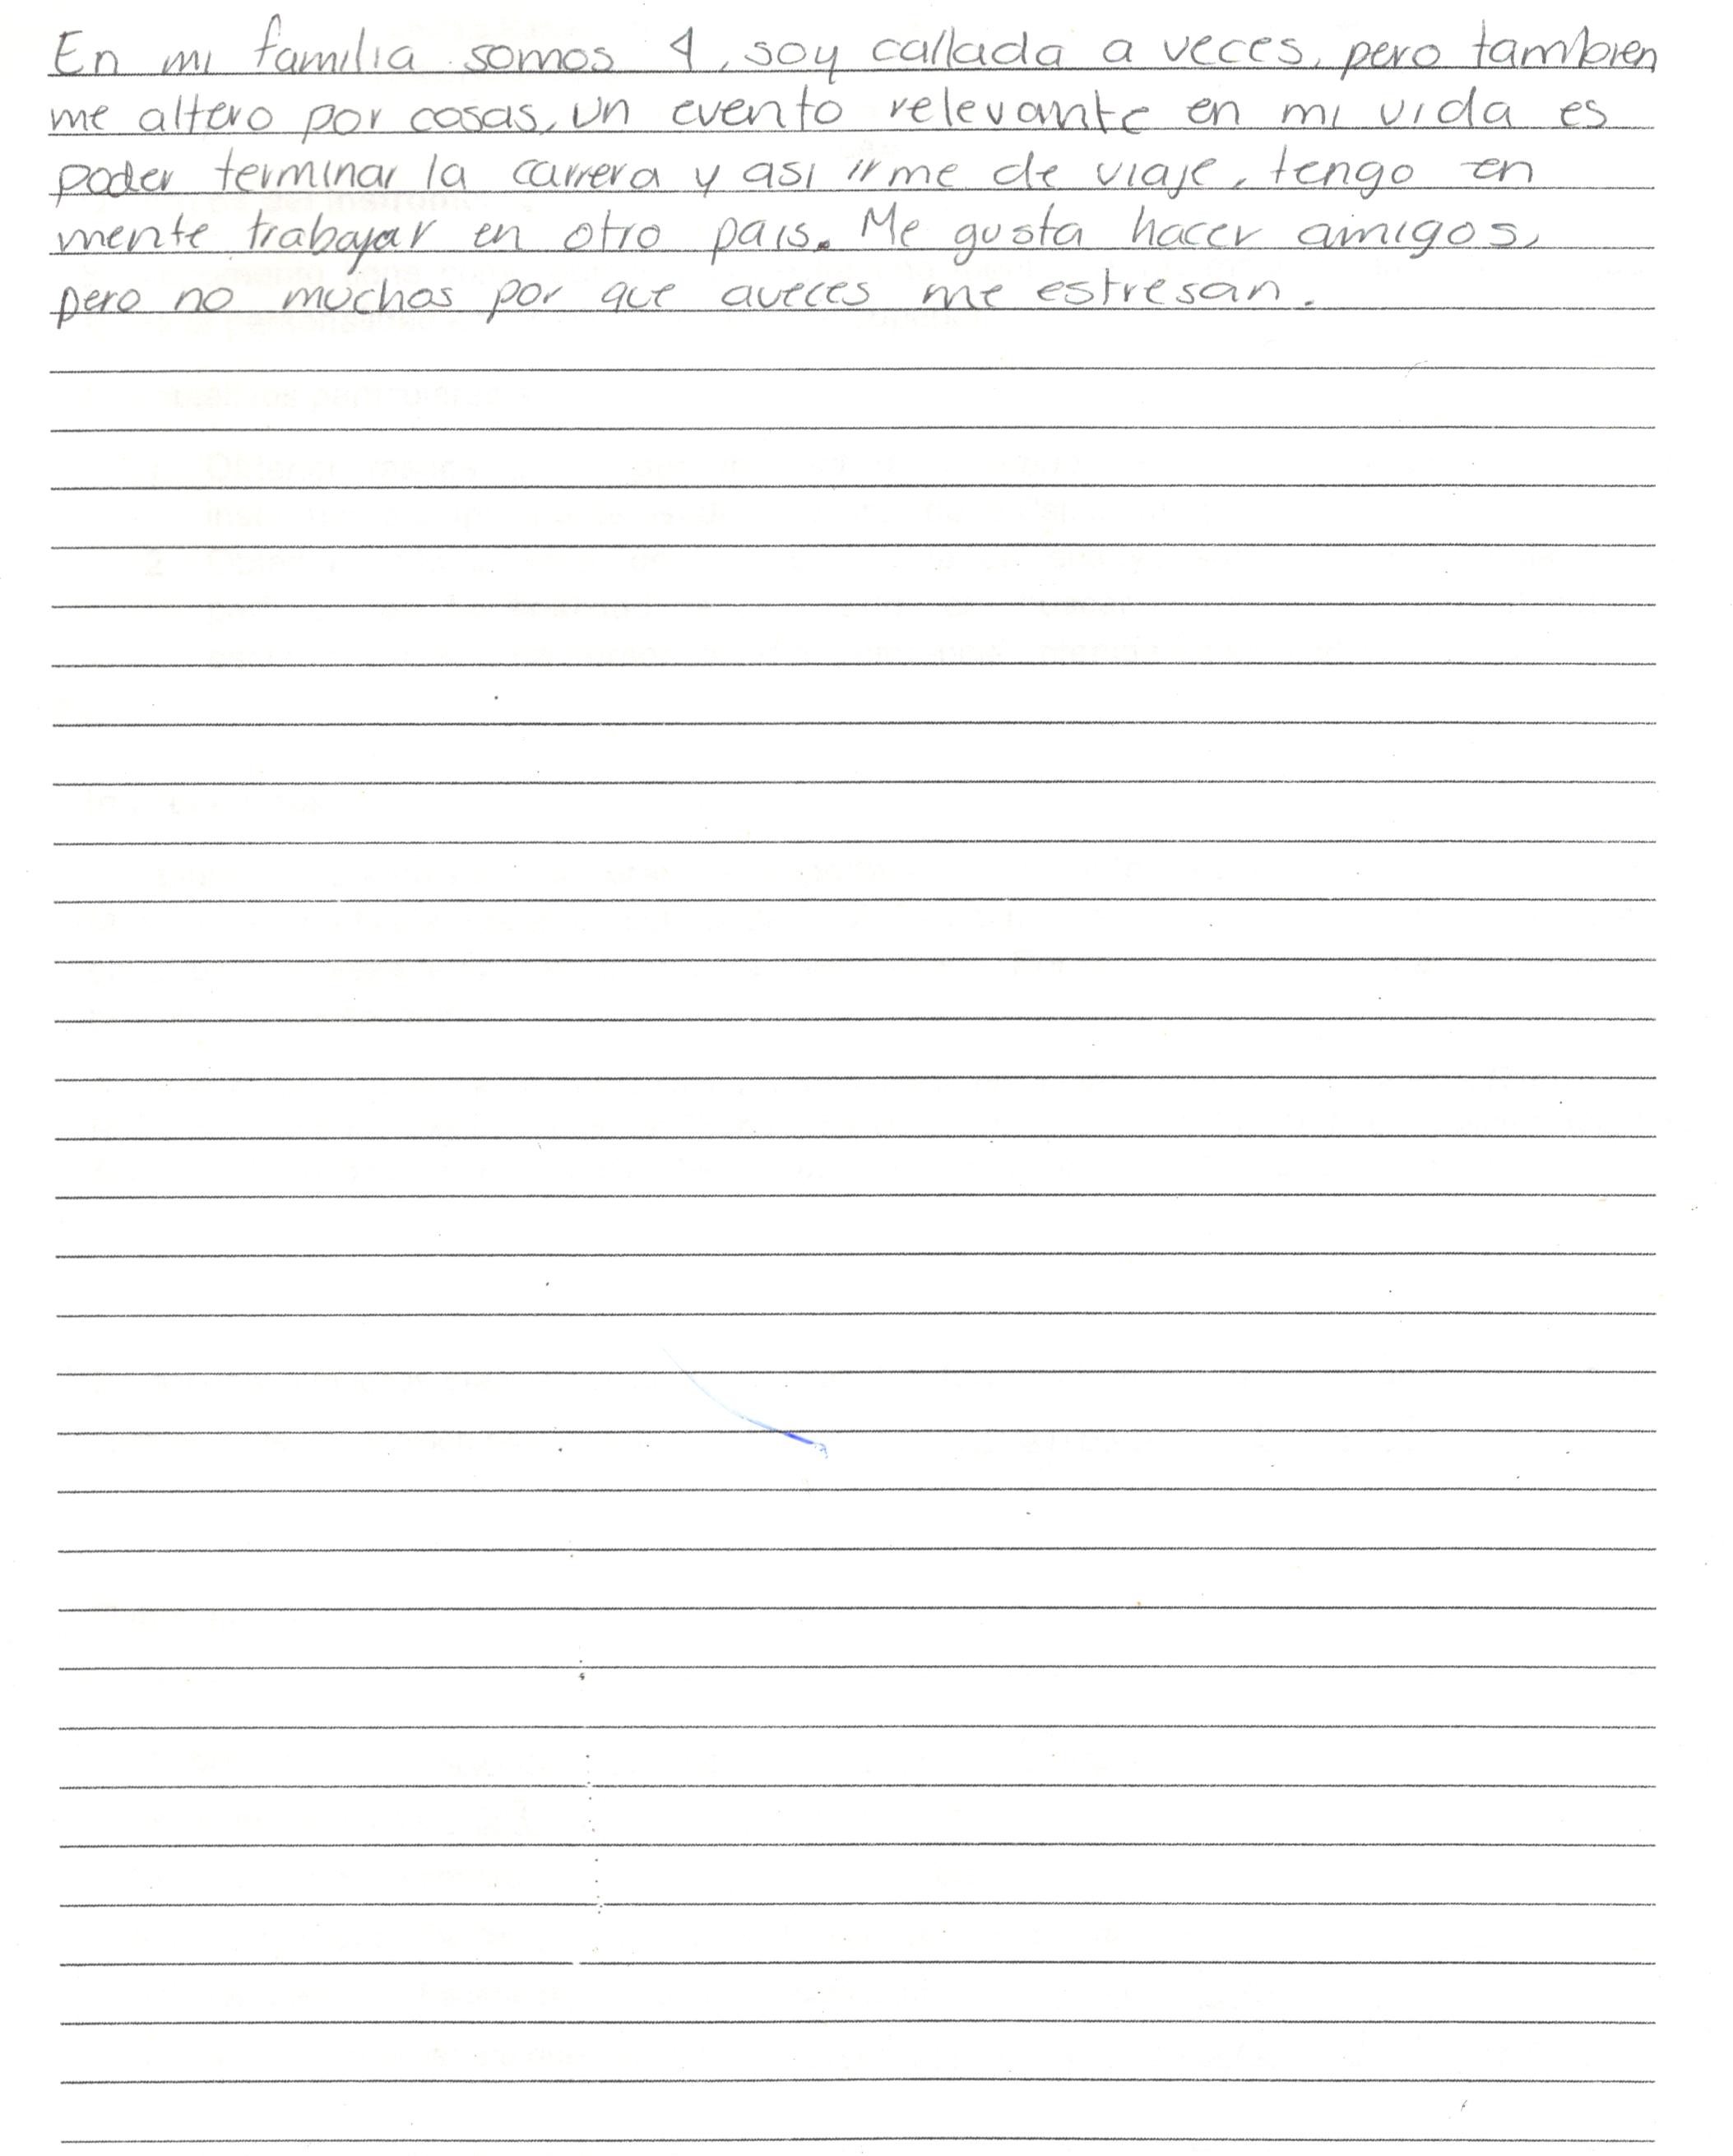 En mi familia somos 4, soy callada a veces, pero tambien
me altero por cosas, un evento relevante en mi vida es
poder terminar la carrera y asi irme de viaje, tengo en
mente trabajar en otro pais. Me gusta hacer amigos,
pero no muchos por que aveces me estresan.